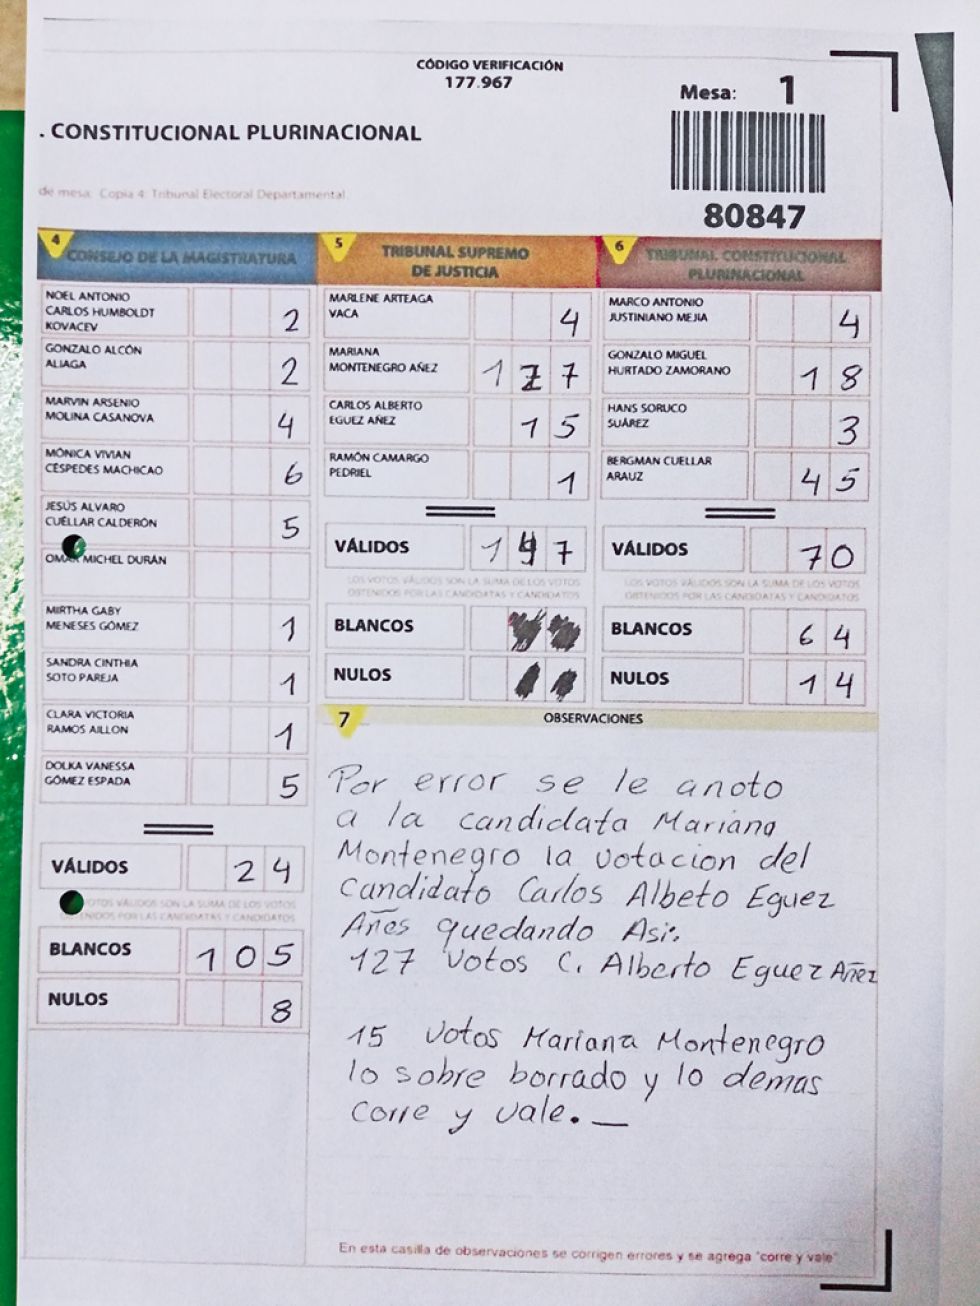 CÓDIGO VERIFICACIÓN
177.967
Mesa: 1
. CONSTITUCIONAL PLURINACIONAL
80847
de mesa, Copia 4: Tribunal Electoral Departamental
4 CONSEJO DE LA MAGISTRATURA
NOEL ANTONIO
CARLOS HUMBOLDT
KOVACEV 2
GONZALO ALCÓN
ALIAGA 2
MARVIN ARSENIO
MOLINA CASANOVA 4
MÓNICA VIVIAN
CÉSPEDES MACHICAO 6
JESÚS ALVARO
CUÉLLAR CALDERÓN 5
OMAR MICHEL DURÁN
MIRTHA GABY
MENESES GÓMEZ 1
SANDRA CINTHIA
SOTO PAREJA 1
CLARA VICTORIA
RAMOS AILLON 1
DOLKA VANESSA
GÓMEZ ESPADA 5
VÁLIDOS 24
VOTOS VÁLIDOS SON LA SUMA DE LOS VOTOS
OBTENIDOS POR LAS CANDIDATAS Y CANDIDATOS
BLANCOS 105
NULOS 8
5 TRIBUNAL SUPREMO
DE JUSTICIA
MARLENE ARTEAGA
VACA 4
MARIANA
MONTENEGRO AÑEZ 1 7
CARLOS ALBERTO
EGUEZ AÑEZ 15
RAMÓN CAMARGO
PEDRIEL 1
VÁLIDOS 147
LOS VOTOS VÁLIDOS SON LA SUMA DE LOS VOTOS
OBTENIDOS POR LAS CANDIDATAS Y CANDIDATOS
BLANCOS
NULOS
6 TRIBUNAL CONSTITUCIONAL
PLURINACIONAL
MARCO ANTONIO
JUSTINIANO MEJIA 4
GONZALO MIGUEL
HURTADO ZAMORANO 18
HANS SORUCO
SUÁREZ 3
BERGMAN CUELLAR
ARAUZ 45
VÁLIDOS 70
LOS VOTOS VÁLIDOS SON LA SUMA DE LOS VOTOS
OBTENIDOS POR LAS CANDIDATAS Y CANDIDATOS
BLANCOS 64
NULOS 14
7 OBSERVACIONES
Por error se le anoto
a la candidata Mariana
Montenegro la votacion del
Candidato Carlos Albeto Eguez
Añes quedando Asi:
127 votos C. Alberto Eguez Añez
15 votos Mariana Montenegro
lo sobre borrado y lo demas
corre y vale.—
En esta casilla de observaciones se corrigen errores y se agrega "corre y vale"